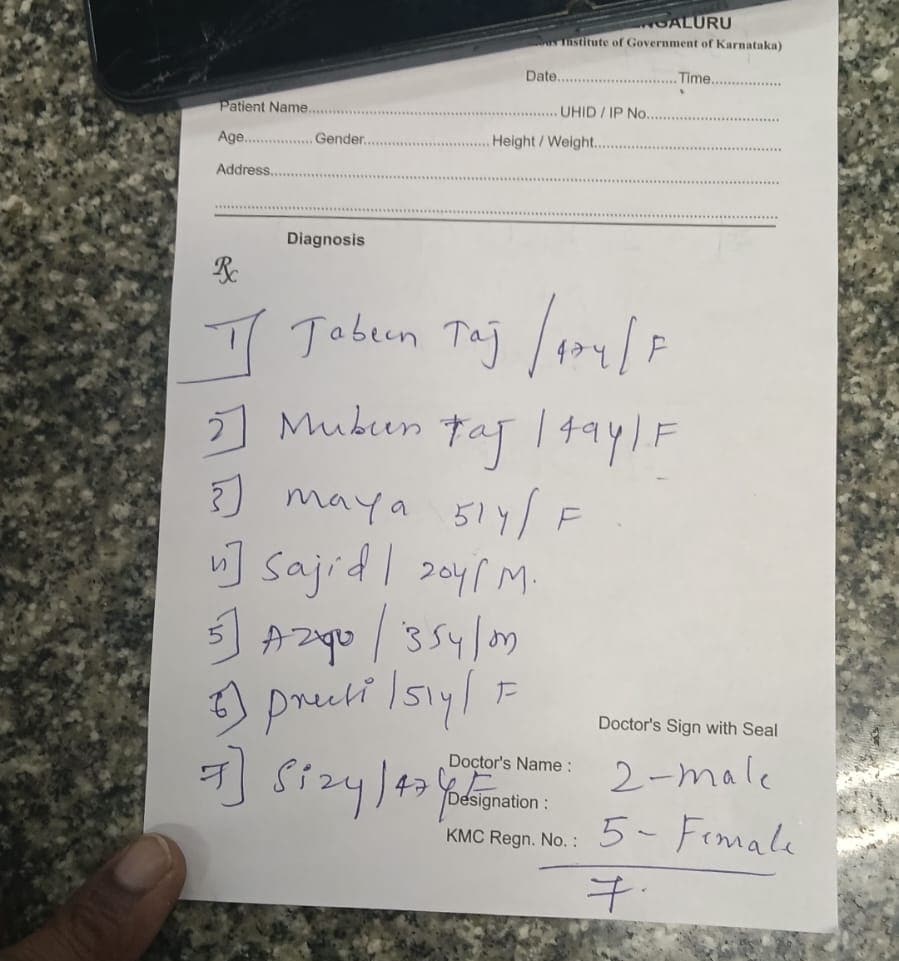 GALURU
Institute of Government of Karnataka)
Date............................Time................
Patient Name.......................................................... UHID / IP No...............................
Age................ Gender.............................. Height / Weight............................................
Address...............................................................................................................
Diagnosis
Rx
1] Tabeen Taj / 47y / F
2] Mubeen Taj / 49y / F
3] maya 51y / F
4] Sajid / 20y / M.
5] / 35y / m
6] preeti / 51y / F
7] Sizy / 47y F
Doctor's Sign with Seal
Doctor's Name : 2-male
Designation :
KMC Regn. No. : 5- Female
7.